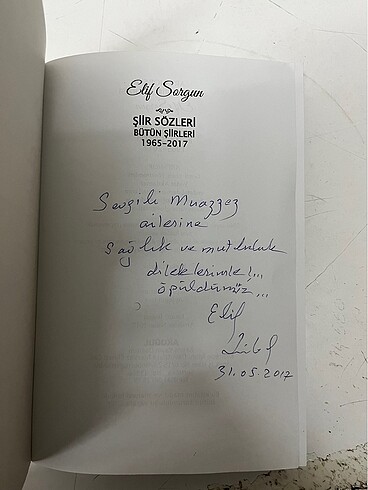 Elif Sorgun
ŞİİR SÖZLERİ
BÜTÜN ŞİİRLERİ
1965-2017
Sevgili Muazzez
ailesine
Sağlık ve mutluluk
dileklerimle!...
öpüldünüz...
Elif
31.05.2017